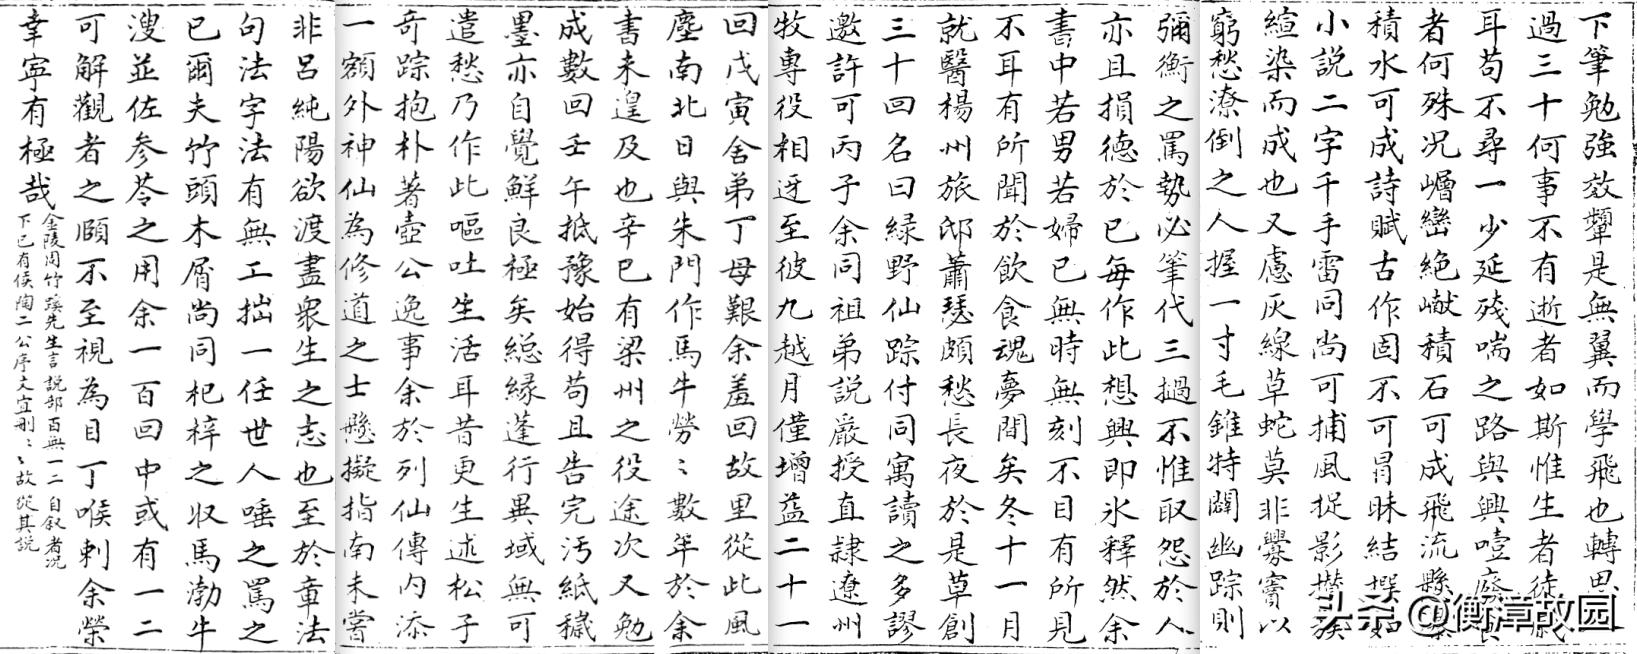 下筆勉強效顰是無翼而學飛也轉思
過三十何事不有逝者如斯惟生者徒
耳苟不尋一少延殘喘之路與興噎廢食
者何殊况嶋巒絕巘積石可成飛流懸
積水可成詩賦古作固不可冒昧結撰如
小說二字千手雷同尚可捕風捉影攢簇
縇染而成也又慮灰線草蛇莫非釁竇以
窮愁潦倒之人握一寸毛錐特闢幽踪則
彌衡之罵勢必筆代三撾不惟取怨於人
亦且損德於已每作此想興即氷釋然余
書中若男若婦已無時無刻不目有所見
不耳有所聞於飲食魂夢間矣冬十一月
就醫楊州旅邸蕭瑟頗愁長夜於是草創
三十回名曰綠野仙踪付同寓讀之多謬
邀許可丙子余同祖弟說嚴授直隷遼州
牧專役相迓至彼九越月僅增益二十一
回戊寅舍弟丁母艱余羞回故里從此風
塵南北日與朱門作馬牛勞〻數年於余
書未遑及也辛巳有梁州之役途次又勉
成數回壬午抵豫始得苟且告完汚紙穢
墨亦自覺鮮良極矣緫緣蓬行異域無可
遣愁乃作此嘔吐生活耳昔更生述松子
奇踪抱朴著壺公逸事余於列仙傳內添
一額外神仙為修道之士懸擬指南未嘗
非呂純陽欲渡盡衆生之志也至於章法
句法字法有無工拙一任世人唾之罵之
已爾夫竹頭木屑尚同杞梓之収馬渤牛
溲並佐參苓之用余一百回中或有一二
可解觀者之頤不至視為目丁喉刺余榮
幸寧有極哉
金陵周竹蹊先生言說部百無一二自叙者况
下已有侯陶二公序文宜刪〻故從其說
头条 @衡漳故园